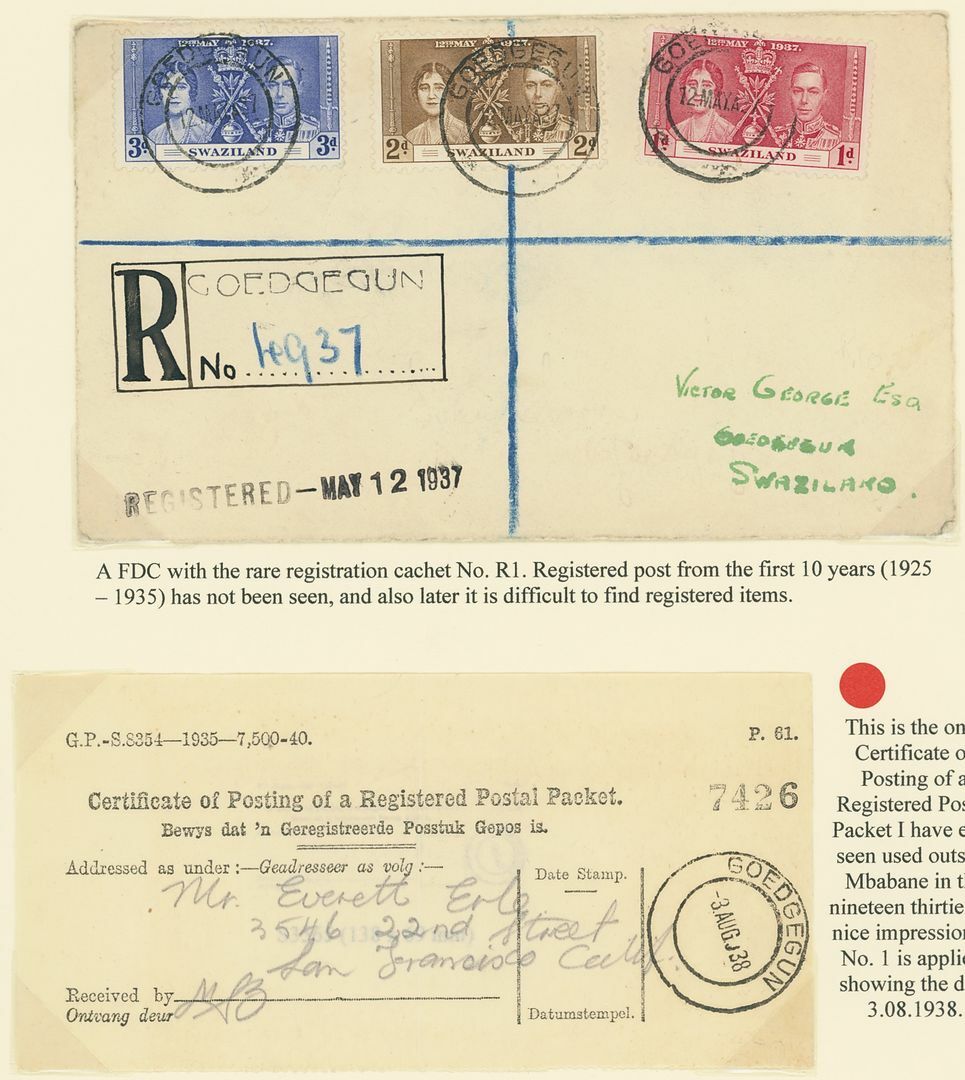 12TH MAY 1937.
3d SWAZILAND 3d
GOEDGEGUN
12 MAY 37
12TH MAY 1937.
2d SWAZILAND 2d
GOEDGEGUN
MAY 37
12TH MAY 1937.
1d SWAZILAND 1d
GOEDGE
12 MAY
R GOEDGEGUN
No 4937
VICTOR GEORGE ESQ
GOEDGEGUN
SWAZILAND.
REGISTERED — MAY 12 1937
A FDC with the rare registration cachet No. R1. Registered post from the first 10 years (1925
– 1935) has not been seen, and also later it is difficult to find registered items.
G.P.-S.8354—1935—7,500-40. P. 61.
Certificate of Posting of a Registered Postal Packet. 7426
Bewys dat 'n Geregistreerde Posstuk Gepos is.
Addressed as under:—Geadresseer as volg:—
Mr. Everett Erle
3546 22nd Street
San Francisco Calif.
Received by
Ontvang deur
Date Stamp.
Datumstempel.
GOEDGEGUN
-3.AUG.38
This is the on
Certificate o
Posting of a
Registered Pos
Packet I have e
seen used outs
Mbabane in t
nineteen thirtie
nice impression
No. 1 is applic
showing the d
3.08.1938.